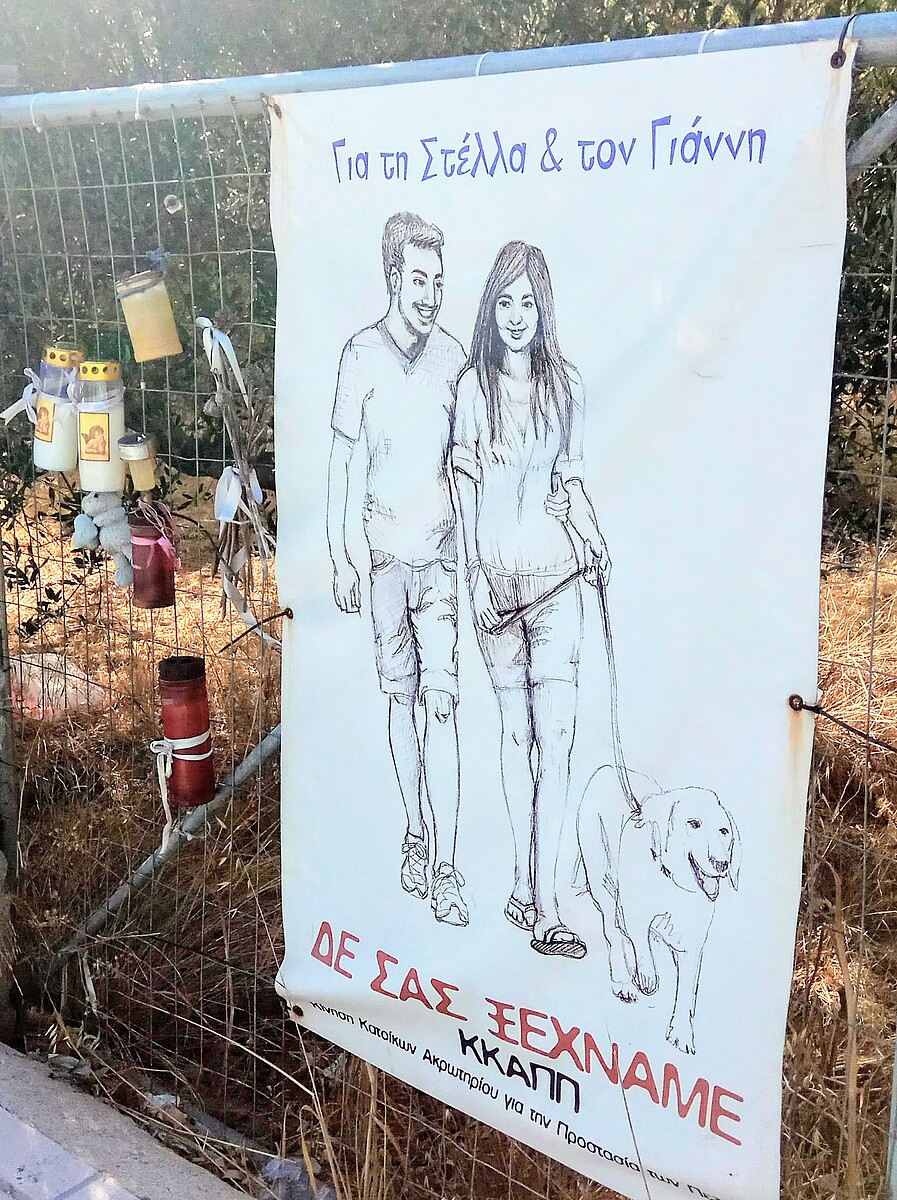 Για τη Στέλλα & τον Γιάννη
ΔΕ ΣΑΣ ΞΕΧΝΑΜΕ
ΚΚΑΠΠ
Κίνηση Κατοίκων Ακρωτηρίου για την Προστασία των